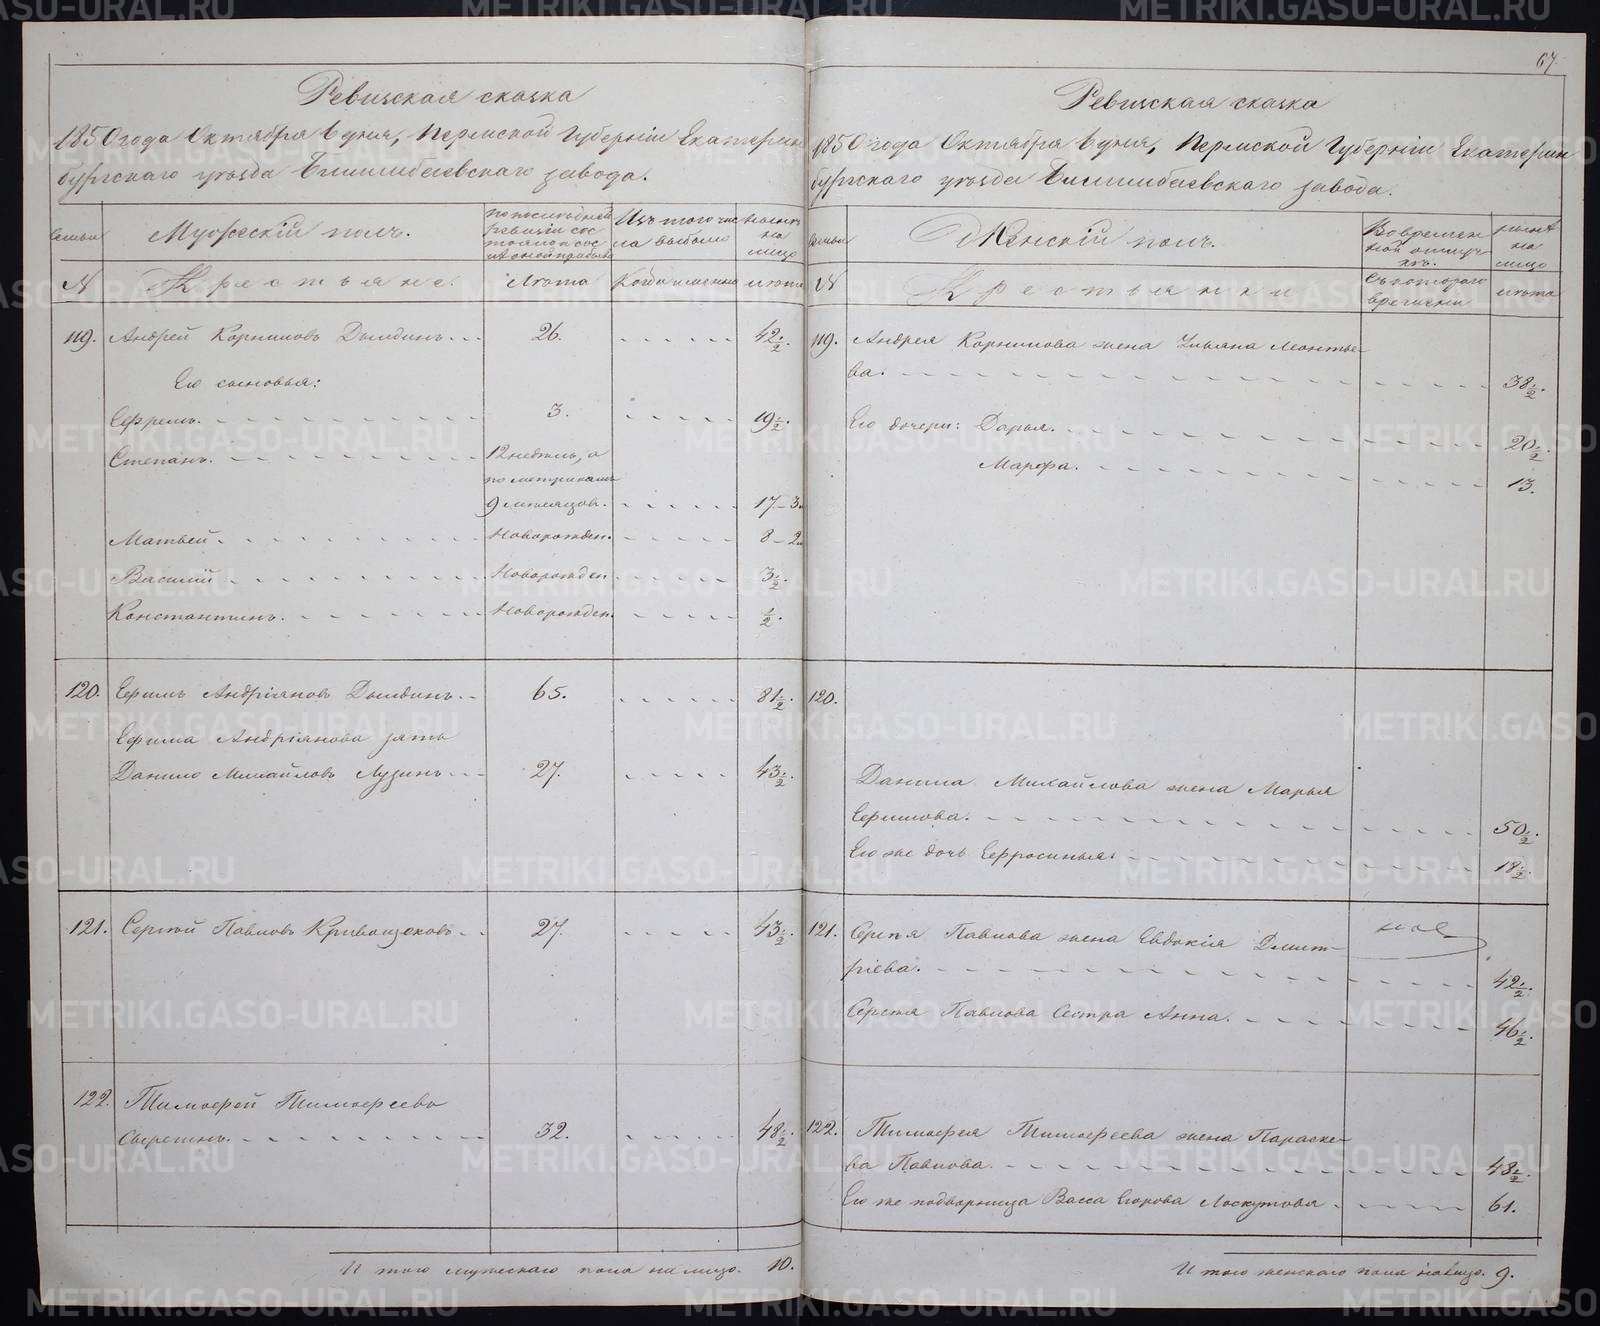 Ревизская сказка
1850 года Октября 6 дня, Пермской Губерніи Екатерин
бургскаго уѣзда Билимбаевскаго завода.
семьи
Мужескій полъ.
по последней ревизіи сос тояло и пос лѣ оной прибыло
Изъ того чис ла выбыло
ныне на лицо
№
Крестьяне.
Лѣта
Когда именно
лѣта
119. Андрей Корниловъ Дылдинъ 26. 42 1/2.
Его сыновья:
Ефремъ. 3. 19 1/2.
Степанъ. 12 недѣль, а
по метрикамъ
9 месяцов. 17-3.
Матвей. Новорожден. 8-2.
Василій Новорожден 3 1/2.
Константинъ. Новорожден. 1/2.
120. Ефимъ Андріяновъ Дылдинъ 65. 81 1/2.
Ефима Андріянова зять
Данило Михайловъ Лузинъ 27. 43 1/2.
121. Сергѣй Павловъ Кривощековъ 27. 43 1/2.
122. Тимофей Тимофеевъ
Сырегинъ. 32. 48 1/2.
И того мужескаго пола на лицо. 10.
67.
Ревизская сказка
1850 года Октября 6 дня, Пермской Губерніи Екатерин
бургскаго уѣзда Билимбаевскаго завода.
семьи
Женскій полъ.
Во времен ной отлуч кѣ.
ныне на лицо
№
Крестьянки
Съ котораго времени
лѣта
119. Андрея Корнилова жена Ульяна Леонтье-
ва. 38 1/2.
Его дочери: Дарья. 20 1/2.
Марфа. 13.
120.
Данила Михайлова жена Марья
Ефимова. 50 1/2.
Его же дочь Ефросинья. 18 1/2.
121. Сергѣя Павлова жена Евдокія Дмит-
ріева. 42 1/2.
Сергѣя Павлова Сестра Анна. 46 1/2.
122. Тимофея Тимофеева жена Параске-
ва Павлова. 48 1/2.
Его же подворница Васса Егорова Лоскутова 61.
И того женскаго пола на лицо. 9.